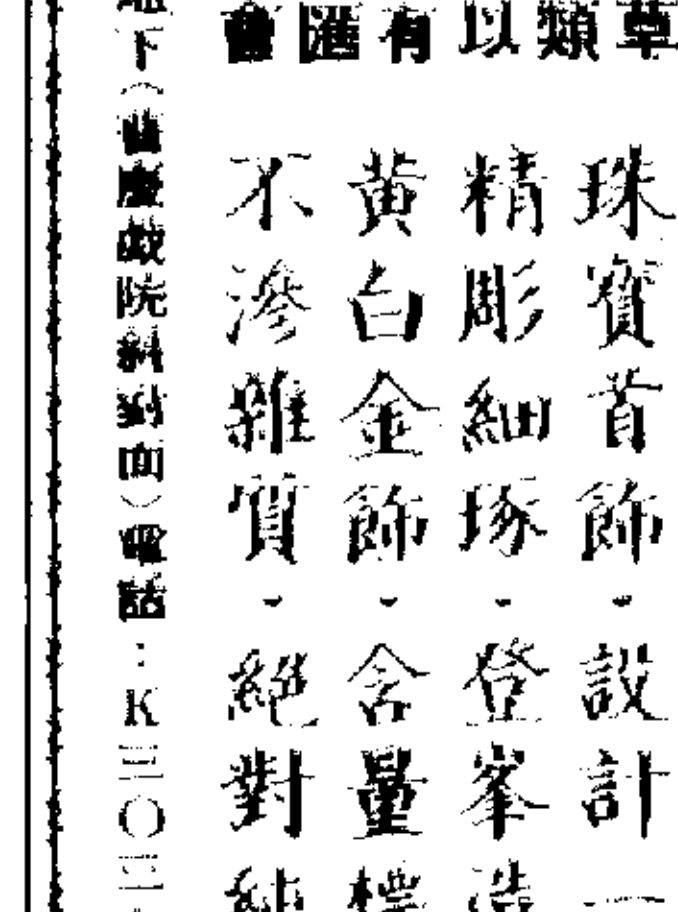 草類以有滙會
珠寶首飾、設計一
精彫細琢、登峯造
黃白金飾、含量標
不滲雜質、絕對純
地下(普慶戲院斜對面)電話:K三〇三